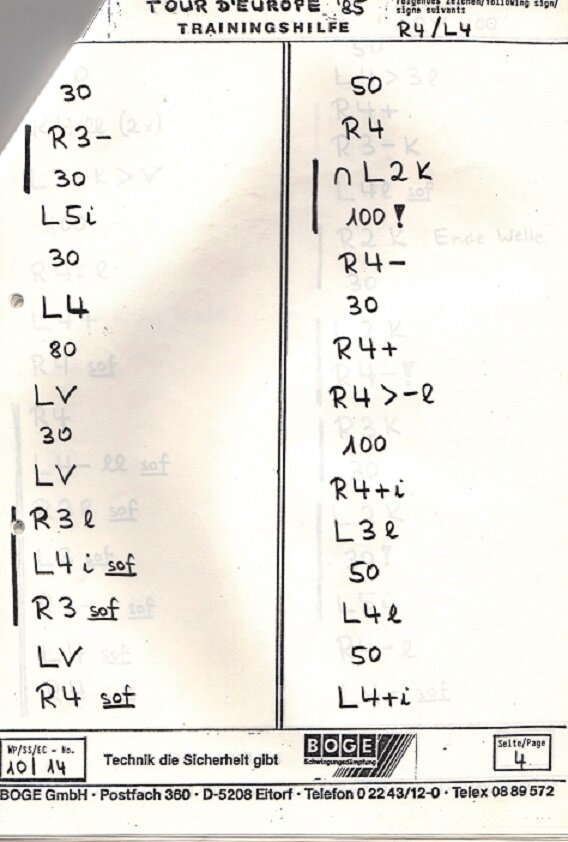 TOUR D'EUROPE '85
TRAININGSHILFE
folgendes Zeichen/following sign/
signe suivants
R4/L4
30
R3-
30
L5i
30
L4
80
LV
30
LV
R3l
L4i sof
R3 sof
LV
R4 sof
50
R4
∩L2K
100!
R4-
30
R4+
R4>-l
100
R4+i
L3l
50
L4l
50
L4+i
WP/SS/EC - No.
10/14
Technik die Sicherheit gibt
BOGE
Schwingungsdämpfung
Seite/Page
4
BOGE GmbH · Postfach 360 · D-5208 Eitorf · Telefon 0 22 43/12-0 · Telex 08 89 572